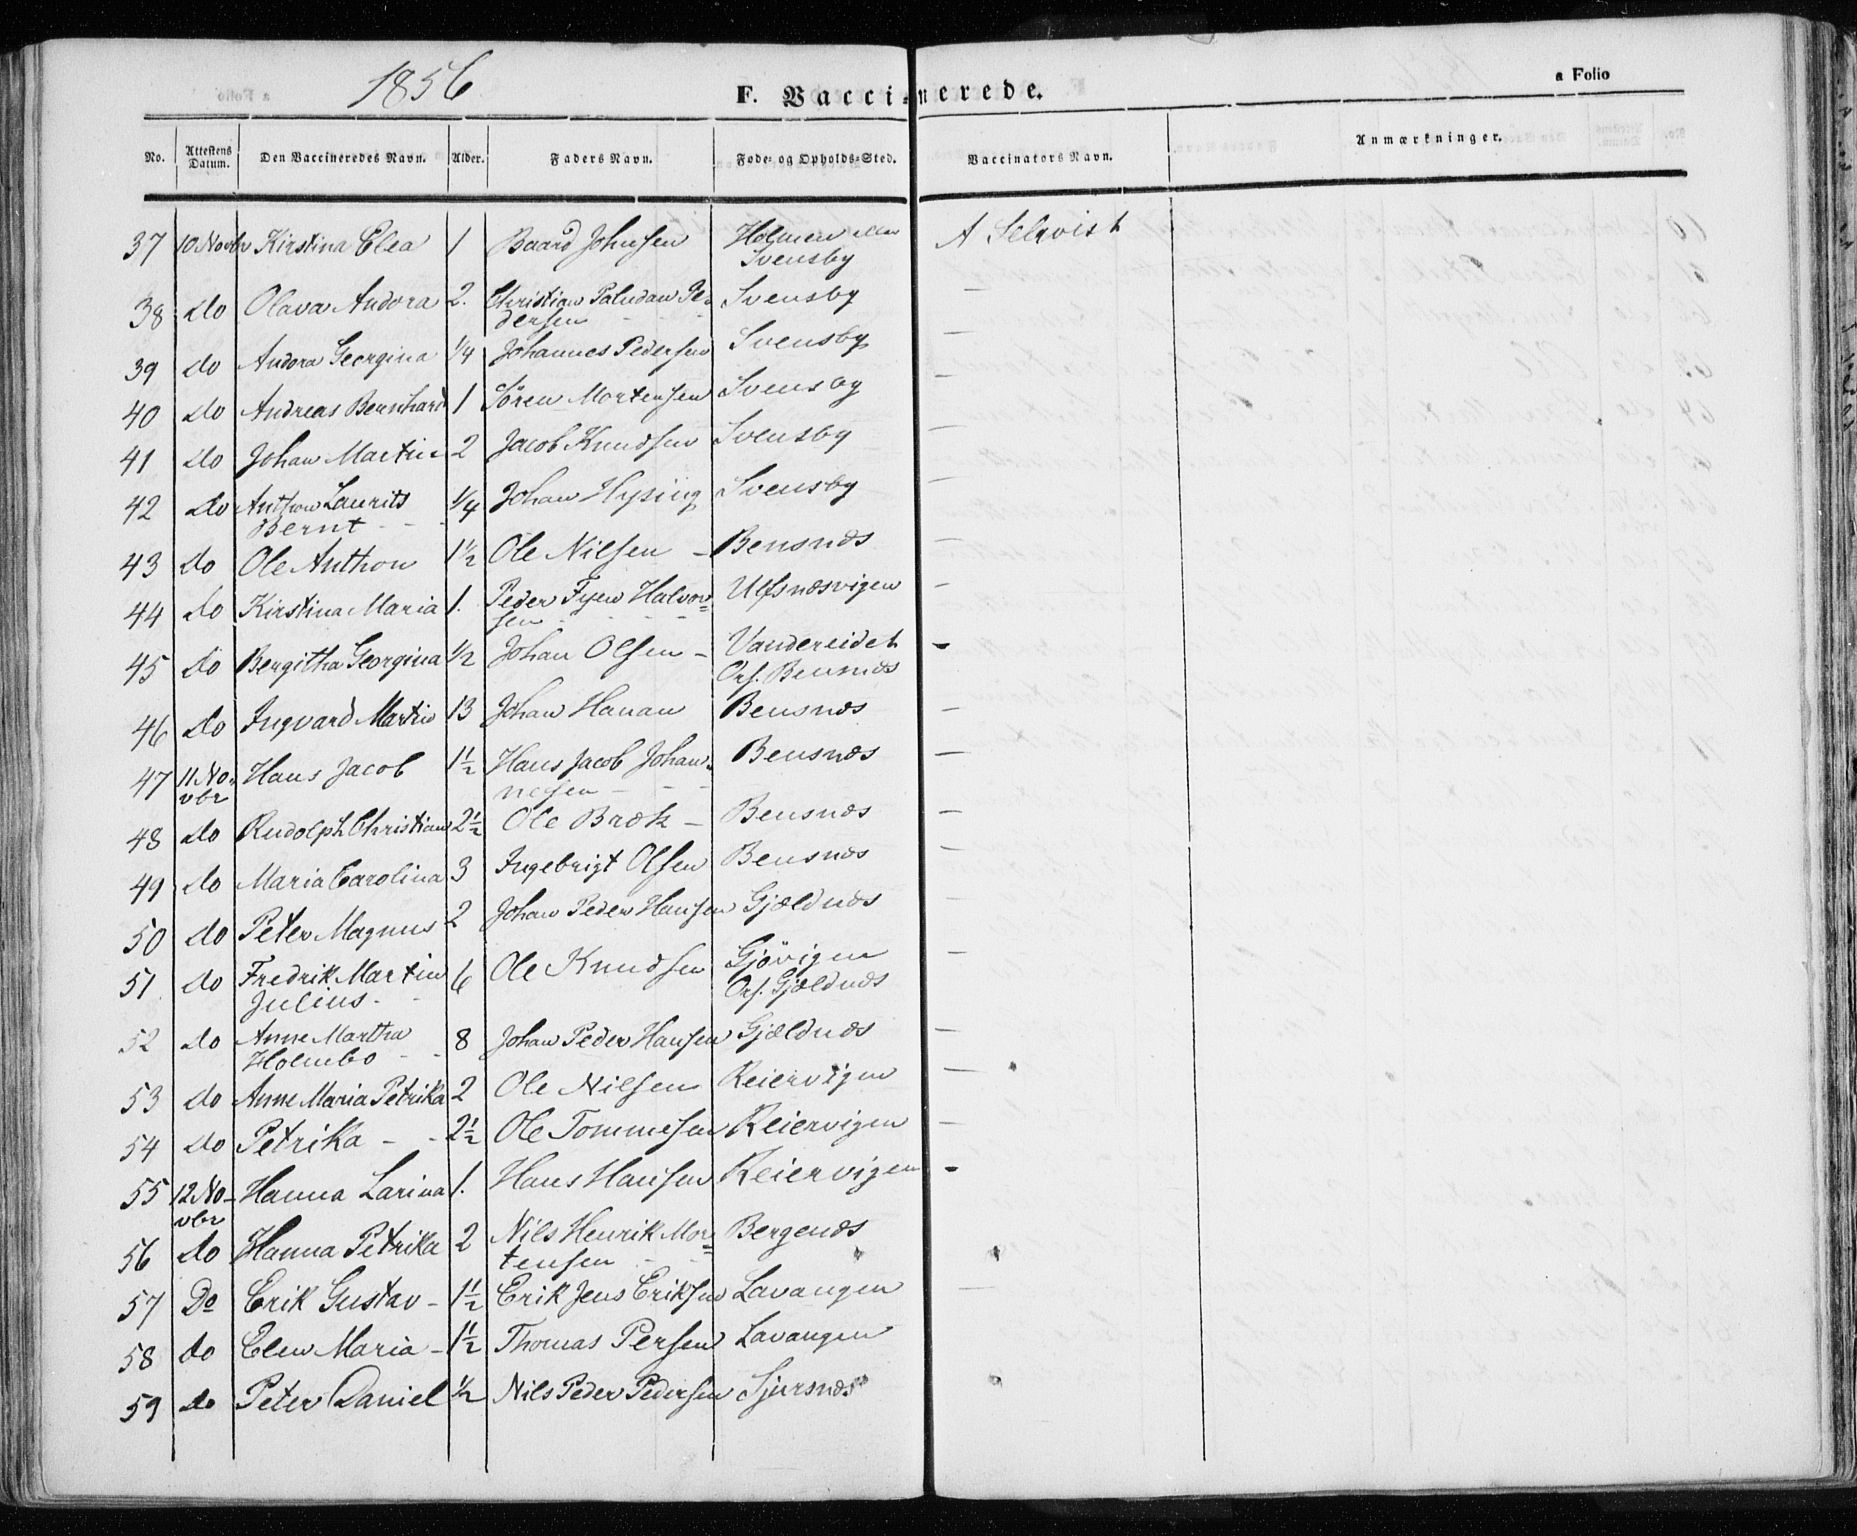 1856
F. Vaccinerede.
a Folio
No. Attestens Datum. Den Vaccineredes Navn. Alder. Faders Navn. Føde- og Opholds-Sted. Vaccinators Navn. Anmærkninger.
37 10 Novbr Kirstina Elea 1 Baard Johnsen Holmen
Svensby
38 do Olava Andora 2. Christian Paludan Pe-
dersen Svensby —
39 do Andora Georgina 1/4 Johannes Pedersen Svensby —
40 do Andreas Bernhard 1 Sören Mortensen Svensby —
41 do Johan Martin 2 Jacob Knudsen Svensby —
42 do Anthon Laurits 1/4 Johan Hysing Svensby —
Bernt - -
43 do Ole Anthon 1 1/2 Ole Nilsen - Bensnæs —
44 do Kirstina Maria 1. Peder Fyen Halvor= Ulfsnæsvigen —
sen - - -
45 do Bergitha Georgina 1/2 Johan Olsen - Vandereidet -
Orf. Bensnæs
46 do Ingvard Martin 13 Johan Hanan Bensnæs —
47 11 No- Hans Jacob 1 1/2 Hans Jacob Johan- Bensnæs —
vbr nesen - - -
48 do Rudolph Christian 2 1/2 Ole Bræk - Bensnæs —
49 do Maria Carolina 3 Ingebrigt Olsen Bensnæs —
50 do Peter Magnus 2 Johan Peder Hansen Gjældnæs —
51 do Fredrik Martin 6 Ole Knudsen Gjövigen —
Julius - Orf. Gjældnæs
52 do Anne Martha 8 Johan Peder Hansen Gjældnæs —
Holmbo - -
53 do Anne Maria Petrika 2 Ole Nilsen Reiervigen —
54 do Petrika - - 2 1/2 Ole Tommesen Reiervigen —
55 12 No- Hanna Larina 1. Hans Hansen Reiervigen -
vbr
56 do Hanna Petrika 2 Nils Henrik Mor= Bergenæs
tensen - -
57 Do Erik Gustav - 1 1/2 Erik Jens Eriksen Lavangen —
58 do Elen Maria - 1 1/2 Thomas Persen Lavangen
59 do Peter Daniel 1/2 Nils Peder Pedersen Sjursnæs